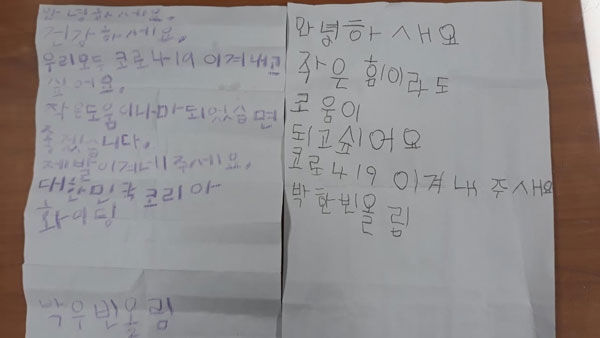 안녕하세요.
건강하세요.
우리모두 코로나19 이겨내고
싶어요.
작은도움이나마되있습면
좋겠습니다.
제발이겨내주세요.
대한민국코리아
화이팅
박우빈올림
안녕하새요
작은 힘이라도
로움이
되고싶어요
코로나19 이겨내 주새요
박한빈올림